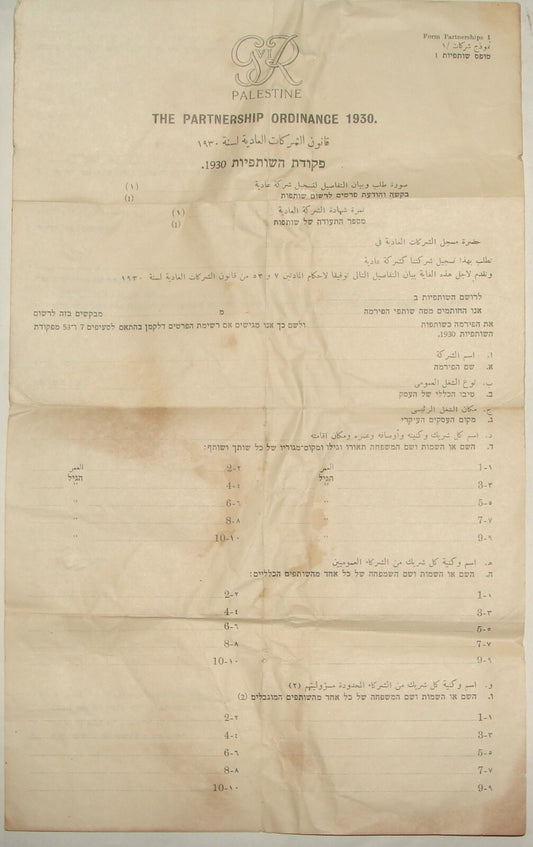 Form Partnerships 1
نموذج شركات /١
טופס שותפיות 1
GVIR
PALESTINE
THE PARTNERSHIP ORDINANCE 1930.
قانون الشركات العادية لسنة ١٩٣٠
פקודת השותפיות 1930.
صورة طلب وبيان التفاصيل لتسجيل شركة عادية (١)
בקשה והודעת פרטים לרשום שותפות (1)
نمرة شهادة الشركة العادية (١)
מספר התעודה של שותפות (1)
حضرة مسجل الشركات العادية في
نطلب بهذا تسجيل شركتنا كشركة عادية
ونقدم لاجل هذه الغاية بيان التفاصيل التالي توفيقا لاحكام المادتين ٧ و ٥٣ من قانون الشركات العادية لسنة ١٩٣٠
לרושם השותפיות ב
אנו החותמים מטה שותפי הפירמה מ מבקשים בזה לרשום
את הפירמה כשותפות ולשם כך אנו מגישים את רשימת הפרטים דלקמן בהתאם לסעיפים 7 ו־53 מפקודת
השותפיות 1930.
ا. اسم الشركة
א. שם הפירמה
ب. نوع الشغل العمومي
ב. טיבו הכללי של העסק
ج. مكان الشغل الرئيسي
ג. מקום העסקים העיקרי
د. اسم كل شريك وكنيته واوصافه وعمره ومكان اقامته
ד. השם או השמות ושם המשפחה תאורו וגילו ומקום־מגוריו של כל שותף ושותף:
1-١ العمر הגיל 2-٢ العمر הגיל
3-٣ " 4-٤ "
5-٥ " 6-٦ "
7-٧ " 8-٨ "
9-٩ " 10-١٠ "
ه. اسم وكنية كل شريك من الشركاء العموميين
ה. השם או השמות ושם המשפחה של כל אחד מהשותפים הכלליים:
1-١ 2-٢
3-٣ 4-٤
5-٥ 6-٦
7-٧ 8-٨
9-٩ 10-١٠
و. اسم وكنية كل شريك من الشركاء المحدودة مسؤوليتهم (٢)
ו. השם או השמות ושם המשפחה של כל אחד מהשותפים המוגבלים (2)
1-١ 2-٢
3-٣ 4-٤
5-٥ 6-٦
7-٧ 8-٨
9-٩ 10-١٠